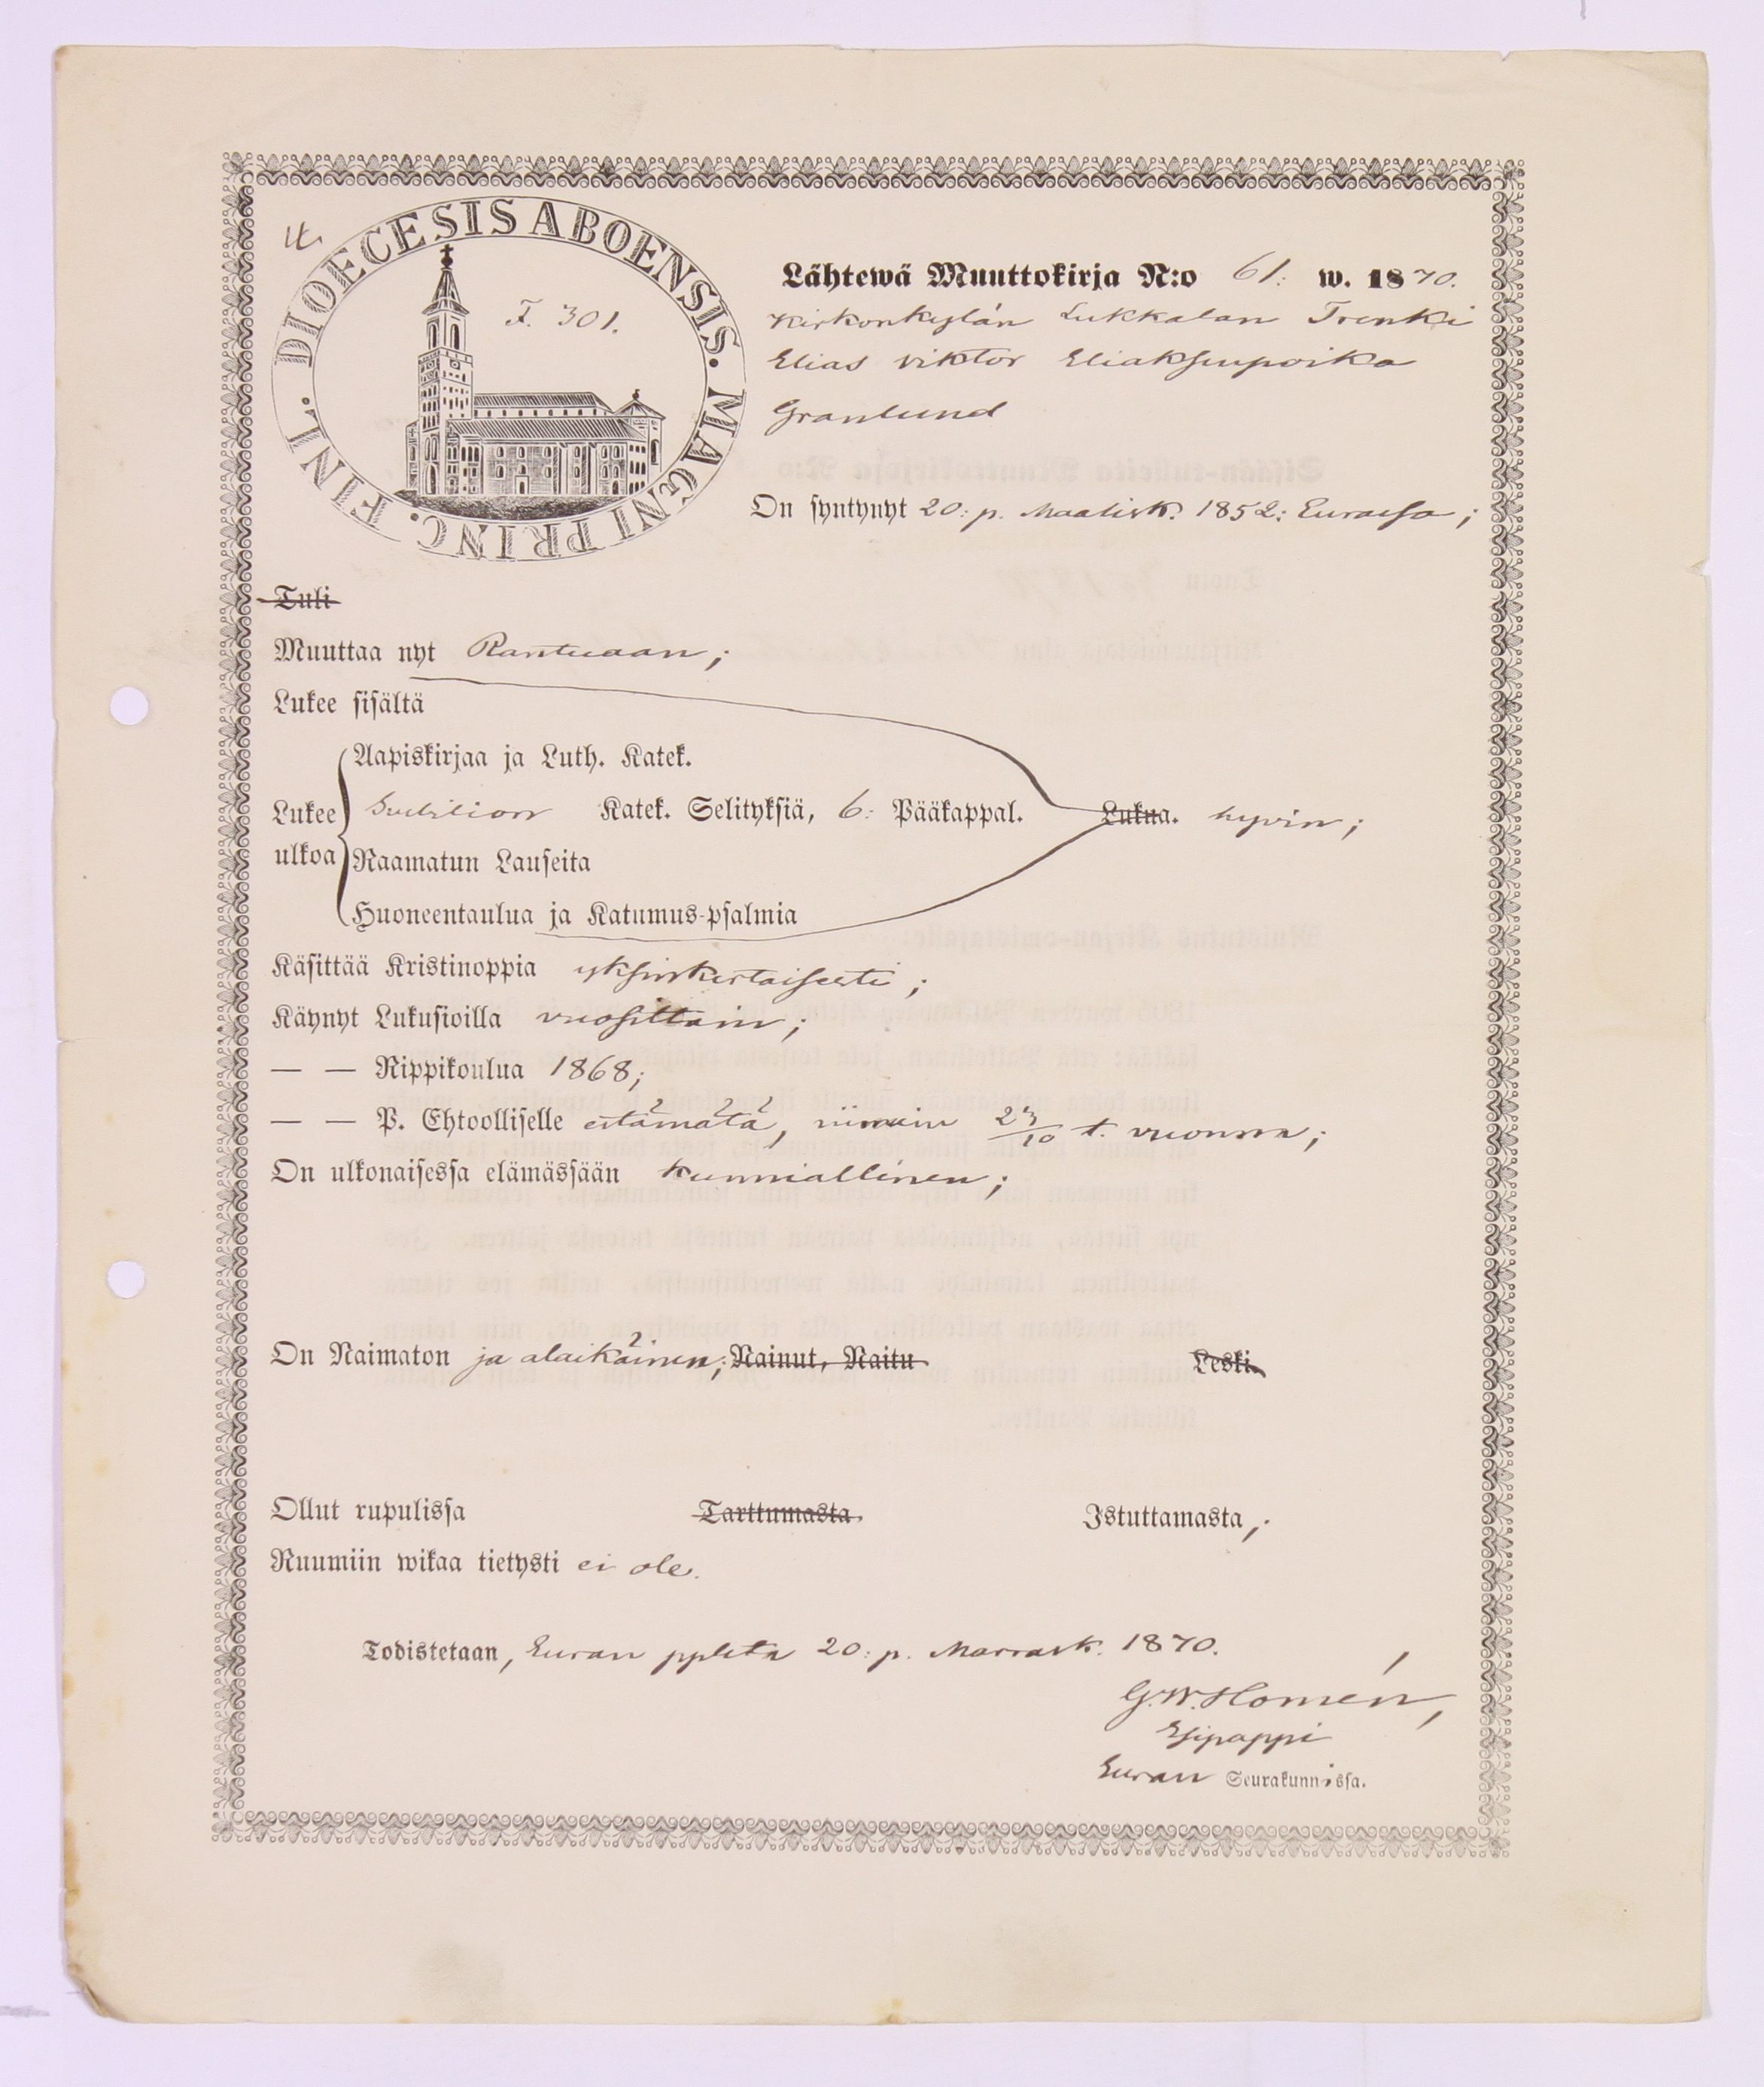 DIOECESIS ABOENSIS. MAGNI PRINC. FINL.
F. 301.
Lähtewä Muuttokirja N:o 61: w. 1870.
Kirkonkylän Lukkalan Trenki
Elias Viktor Eliaksenpoika
Granlund
On syntynyt 20: p. Maalisk. 1852: Eurassa;
Tuli
Muuttaa nyt Rantuaan;
Lukee sisältä
Aapiskirjaa ja Luth. Katek.
Lukee ulkoa Katek. Selityksiä, 6: Pääkappal. Lukua. hyvin;
Raamatun Lauseita
Huoneentaulua ja Katumus-psalmia
Käsittää Kristinoppia yksinkertaisesti;
Käynyt Lukusioilla vuosittain;
— — Rippikoulua 1868;
— — P. Ehtoolliselle estämätä, niinkuin 23/10 t. vuonna;
On ulkonaisessa elämässään kunniallinen;
On Naimaton ja alaikäinen; Nainut, Naitu Leski.
Ollut rupulissa Tarttumasta. Istuttamasta,.
Ruumiin wikaa tietysti ei ole.
Todistetaan, Euran pplsta 20: p. Marrask. 1870.
G.W. Homén,
Esipappi
Euran Seurakunnissa.